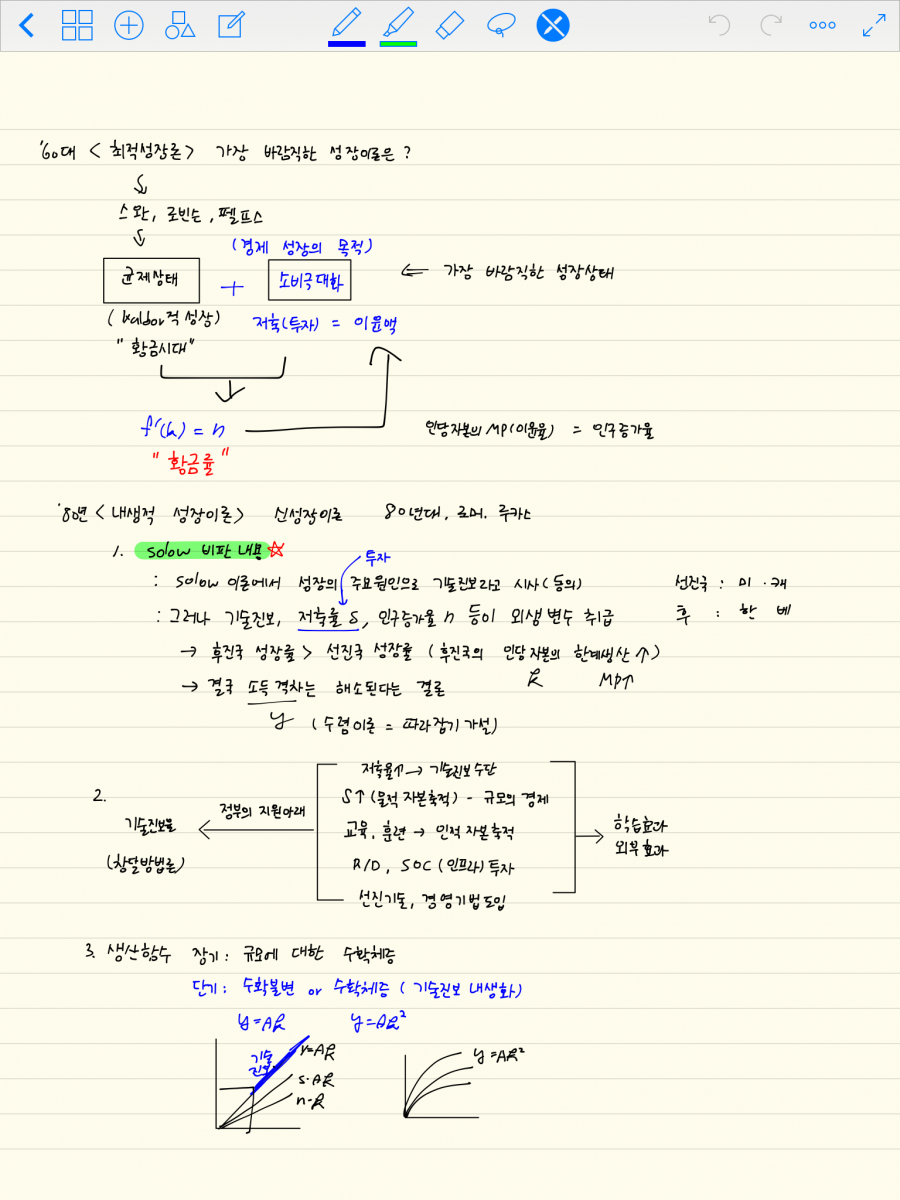 '60대 < 최적성장론 > 가장 바람직한 성장이론은 ?
스완, 로빈슨, 펠프스
(경제 성장의 목적)
균제상태 + 소비극대화 ⇐ 가장 바람직한 성장상태
(Kaldor적 성장) 저축(투자) = 이윤액
"황금시대"
f'(k) = n 인당자본의 MP(이윤율) = 인구증가율
"황금률"
'80년 < 내생적 성장이론 > 신성장이론 80년대, 로머, 루카스
1. Solow 비판 내용 ☆
투자
: Solow 이론에서 성장의 주요원인으로 기술진보라고 시사(동의) 선진국 : 미 · 캐
: 그러나 기술진보, 저축률 s, 인구증가율 n 등이 외생변수 취급 후 : 한 베
→ 후진국 성장률 > 선진국 성장률 (후진국의 인당 자본의 한계생산↑)
k MP↑
→ 결국 소득격차는 해소된다는 결론
y (수렴이론 = 따라잡기 가설)
저축율↑ → 기술진보수단
2. 정부의 지원아래 S↑(물적 자본축적) - 규모의 경제
기술진보율 교육, 훈련 → 인적 자본축적 학습효과
(창달방법론) R/D, SOC (인프라) 투자 외부효과
선진기술, 경영기법도입
3. 생산함수 장기 : 규모에 대한 수확체증
단기 : 수확불변 or 수확체증 (기술진보 내생화)
y=Ak y=Ak²
기술진보 y=Ak y=Ak²
s·Ak
n·k